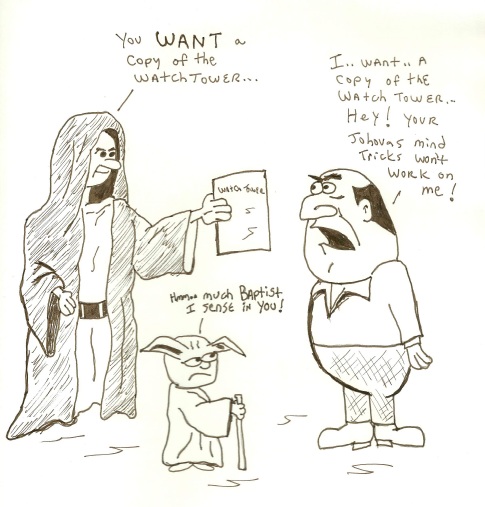 You WANT a
Copy of the
WATCH TOWER...
I.. WANT.. A
Copy of the
WATCH TOWER..
Hey! YOUR
Johovas mind
Tricks won't
WORK ON
me!
WATCH TOWER
Hmm... much BAPTIST
I sense in you!